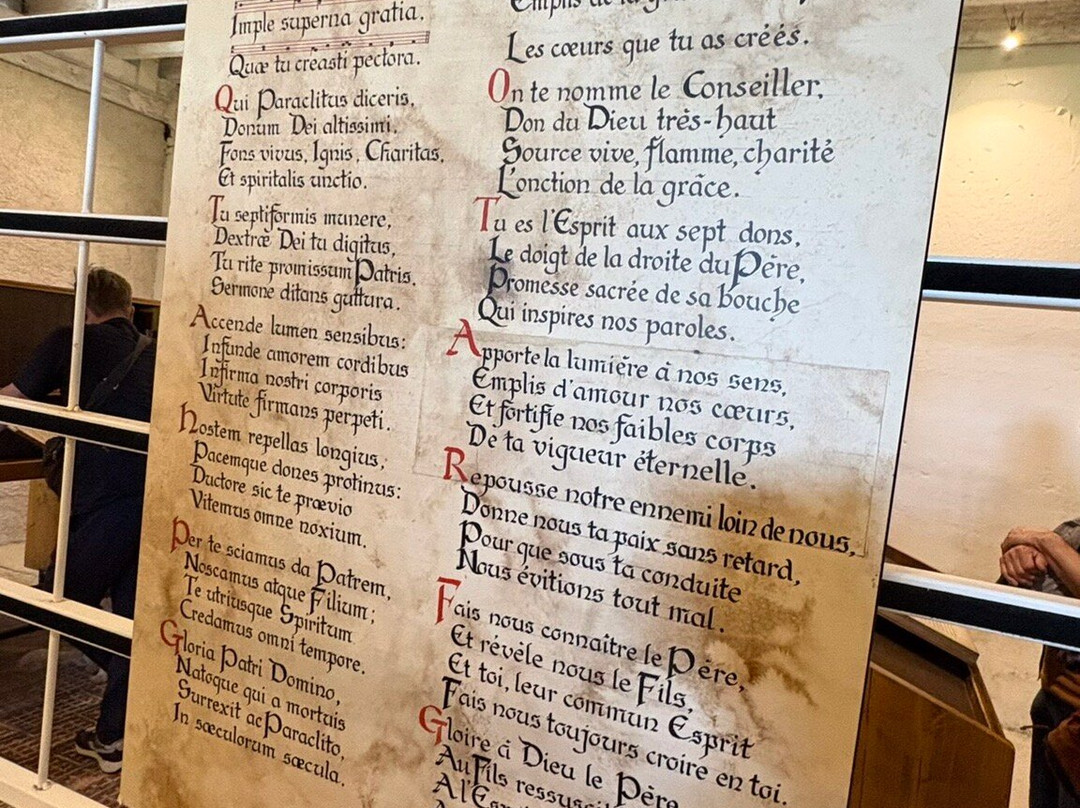 Imple superna gratia.
Quæ tu creasti pectora.
Qui Paraclitus diceris,
Donum Dei altissimi,
Fons vivus, Ignis, Charitas,
Et spiritalis unctio.
Tu septiformis munere,
Dextræ Dei tu digitus,
Tu rite promissum Patris.
Sermone ditans guttura.
Accende lumen sensibus:
Infunde amorem cordibus
Infirma nostri corporis
Virtute firmans perpeti.
hostem repellas longius;
Pacemque dones protinus:
Ductore sic te prævio
Vitemus omne noxium.
Per te sciamus da Patrem,
Noscamus atque Filium;
Te utriusque Spiritum
Credamus omni tempore.
Gloria Patri Domino,
Natoque qui a mortuis
Surrexit ac Paraclito,
In sæculorum sæcula.
Emplis de la
Les cœurs que tu as créés.
On te nomme le Conseiller,
Don du Dieu très-haut
Source vive, flamme, charité
L'onction de la grâce.
Tu es l'Esprit aux sept dons,
Le doigt de la droite du Père,
Promesse sacrée de sa bouche
Qui inspires nos paroles.
Apporte la lumière à nos sens,
Emplis d'amour nos cœurs,
Et fortifie nos faibles corps
De ta vigueur éternelle.
Repousse notre ennemi loin de nous,
Donne nous ta paix sans retard,
Pour que sous ta conduite
Nous évitions tout mal.
Fais nous connaître le Père,
Et révèle nous le Fils,
Et toi, leur commun Esprit
Fais nous toujours croire en toi.
Gloire à Dieu le Père
Au Fils
A l'Es